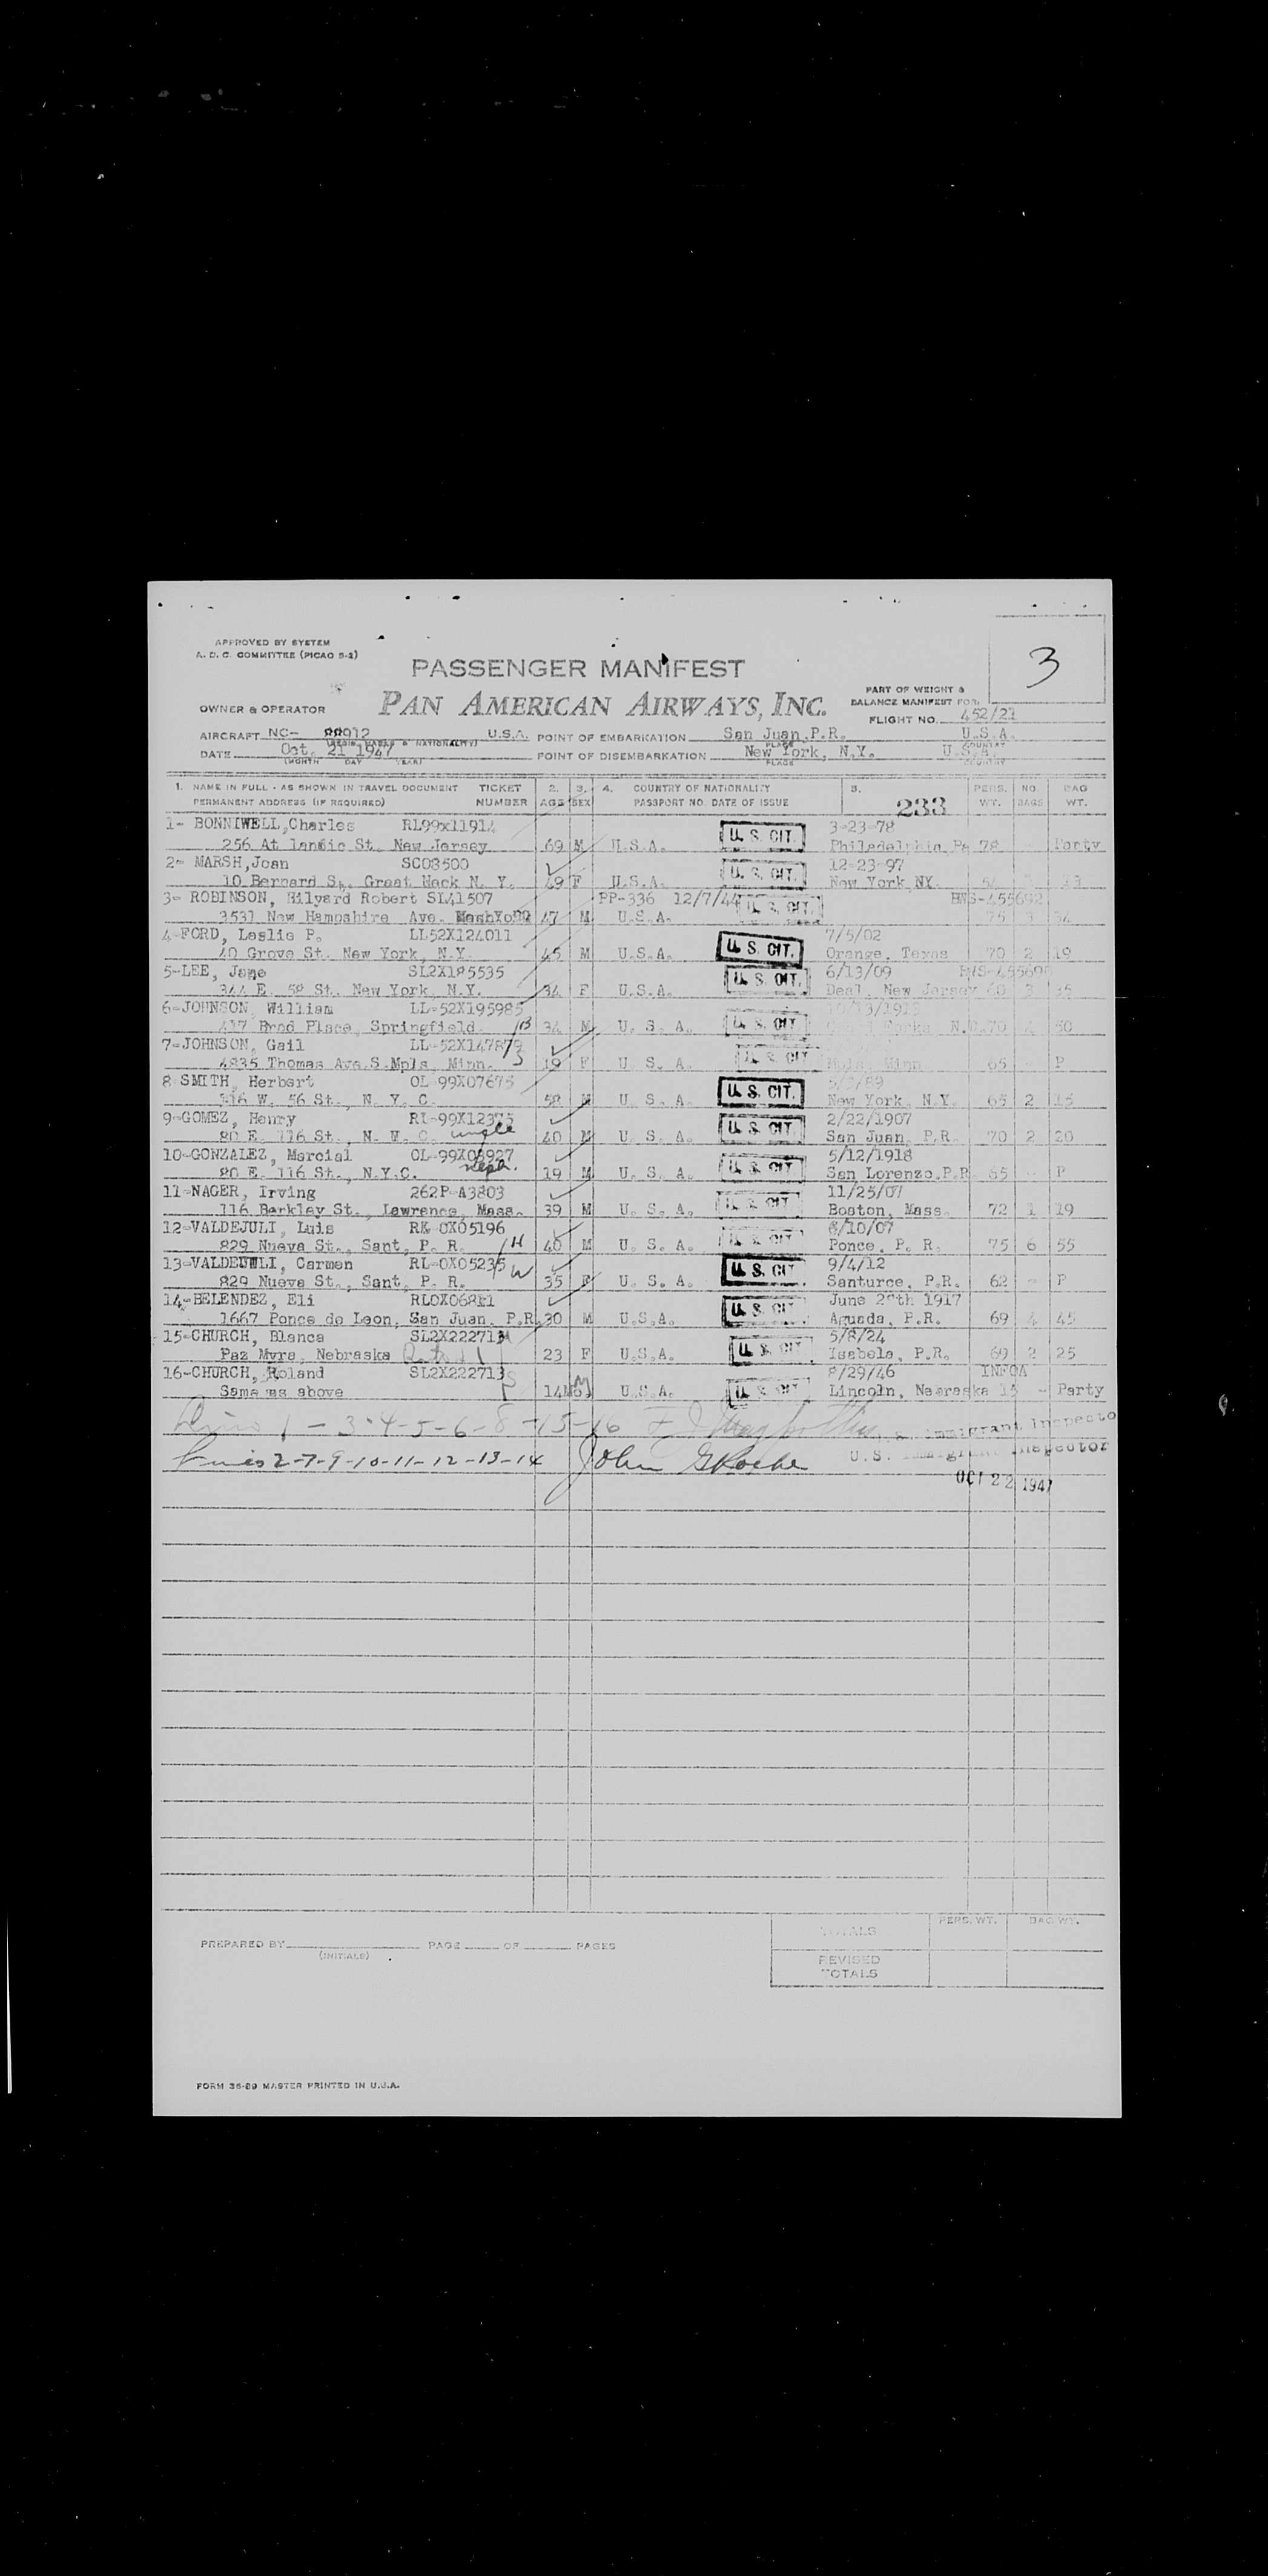 APPROVED BY SYSTEM
A. D. C. COMMITTEE (PICAO 5-2)
3
PASSENGER MANIFEST
PAN AMERICAN AIRWAYS, INC.
PART OF WEIGHT &
BALANCE MANIFEST FOR
OWNER & OPERATOR
FLIGHT NO. 452/21
AIRCRAFT NC- 88912 U.S.A. POINT OF EMBARKATION San Juan,P.R. U.S.A.
DATE Oct. 21 1947 POINT OF DISEMBARKATION New York, N.Y. U.S.A.
(MONTH DAY YEAR) PLACE COUNTRY
1. NAME IN FULL - AS SHOWN IN TRAVEL DOCUMENT TICKET 2. 3. 4. COUNTRY OF NATIONALITY 5. PERS. NO. BAG
PERMANENT ADDRESS (IF REQUIRED) NUMBER AGE SEX PASSPORT NO. DATE OF ISSUE 233 WT. BAGS WT.
1- BONNIWELL,Charles RL99x11914 U. S. CIT. 3-23-78
256 At lantic St. New Jersey 69 M U.S.A. Philadelphia Pa 78 - Party
2- MARSH,Joan SC08500 U. S. CIT. 12-23-97
10 Bernard S. Great Neck N. Y. 49 F U.S.A. New York NY.
3- ROBINSON, Hilyard Robert SL41507 PP-336 12/7/44 U. S. CIT. BWS-455692
3531 New Hampshire Ave. 47 M U.S.A. 75 3 34
4-FORD, Leslie P. LL52X124011 U. S. CIT. 7/5/02
40 Grove St. New York, N.Y. 45 M U.S.A. Orange, Texas 70 2 19
5-LEE, Jane SL2X185535 U. S. CIT. 6/13/09
344 E. 58 St. New York, N.Y. 34 F U.S.A. Deal, New Jersey 60 3 35
6-JOHNSON, William LL-52X195985 U. S. CIT.
417 Brod Place, Springfield B 34 M U. S. A. 70 50
7-JOHNSON, Gail LL-52X147879 U. S. CIT
4835 Thomas Ave.S.Mpls, Minn. S 19 F U. S. A. Minn 65 - P
8-SMITH, Herbert OL-99X07675 U. S. CIT.
316 W. 56 St., N. Y. C. 58 M U. S. A. New York, N.Y. 65 2 15
9-GOMEZ, Henry RL-99X12375 U. S. CIT 2/22/1907
80 E. 116 St., N. Y. C. uncle 40 M U. S. A. San Juan, P.R. 70 2 20
10-GONZALEZ, Marcial OL-99X08927 U. S. CIT 5/12/1918
80 E. 116 St., N.Y.C. neph. 19 M U. S. A. San Lorenzo,P.R 65 - P
11-NAGER, Irving 262P-A3803 U. S. CIT 11/25/07
116 Berkley St., Lawrence, Mass. 39 M U. S. A. Boston, Mass. 72 1 19
12-VALDEJULI, Luis RK 0X05196 U. S. CIT 8/10/07
829 Nueva St., Sant, P. R. H 40 M U. S. A. Ponce, P. R. 75 6 55
13-VALDEJULI, Carmen RL-0X05235 U. S. CIT 9/4/12
829 Nueva St., Sant, P. R. W 35 F U. S. A. Santurce, P.R. 62 - P
14-BELENDEZ, Eli RL0X06811 U. S. CIT June 28th 1917
1667 Ponce de Leon, San Juan, P.R. 30 M U.S.A. Aguada, P.R. 69 4 45
15-CHURCH, Blanca SL2X222713 M U. S. CIT 5/8/24
Paz Myra, Nebraska 23 F U.S.A. Isabela, P.R. 69 2 25
16-CHURCH, Roland SL2X222713 S U. S. CIT 8/29/46 INFOA
Same as above 14M M U.S.A. Lincoln, Nebraska 15 - Party
1 - 3-4-5-6-8-15-16 Immigrant Inspecto
Lines 2-7-9-10-11-12-13-14 John G Roche U.S. Immigrant Inspector
OCT 22 1947
TOTALS PERS. WT. BAG WT.
PREPARED BY PAGE OF PAGES
(INITIALS)
REVISED
TOTALS
FORM 36-89 MASTER PRINTED IN U.S.A.